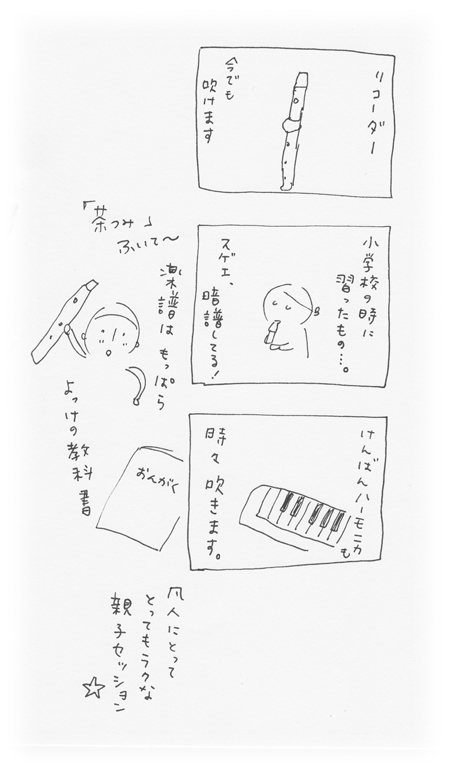 リコーダー
今でも
吹けます
小学校の時に
習ったもの…。
スゲエ、
暗譜してる!
「茶つみ」
ふいて〜
楽譜はもっぱら
よっけの教科書
おんがく
けんばんハーモニカも
時々吹きます。
凡人にとって
とってもラクな
親子セッション
☆